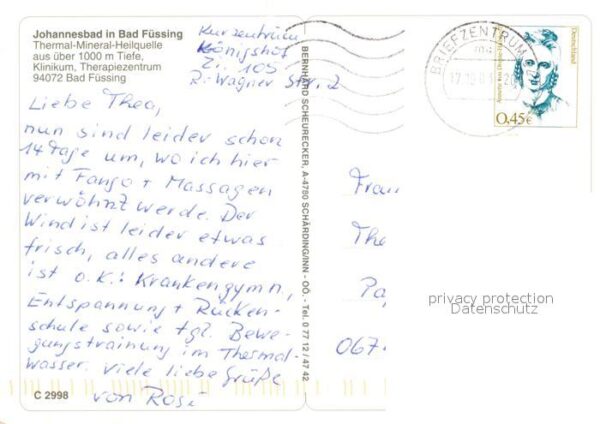 Johannesbad in Bad Füssing
Thermal-Mineral-Heilquelle
aus über 1000 m Tiefe,
Klinikum, Therapiezentrum
94072 Bad Füssing
Kurzentrum
Königshof
Zi. 105
R.-Wagner Str. 2
Liebe Thea,
nun sind leider schon
14 Tage um, wo ich hier
mit Fango + Massagen
verwöhnt werde. Der
Wind ist leider etwas
frisch, alles andere
ist o.k.: Krankengymn,
Entspannung + Rücken-
schule sowie tgl. Bewe-
gungstraining im Thermal-
wasser. Viele liebe Grüße
von Rosi
C 2998
BERNHARD SCHEURECKER, A-4780 SCHÄRDING/INN - OÖ. - Tel. 0 77 12 / 47 42
BRIEFZENTRUM
Deutschland
0,45€
Frau
The
Pa
067
privacy protection
Datenschutz